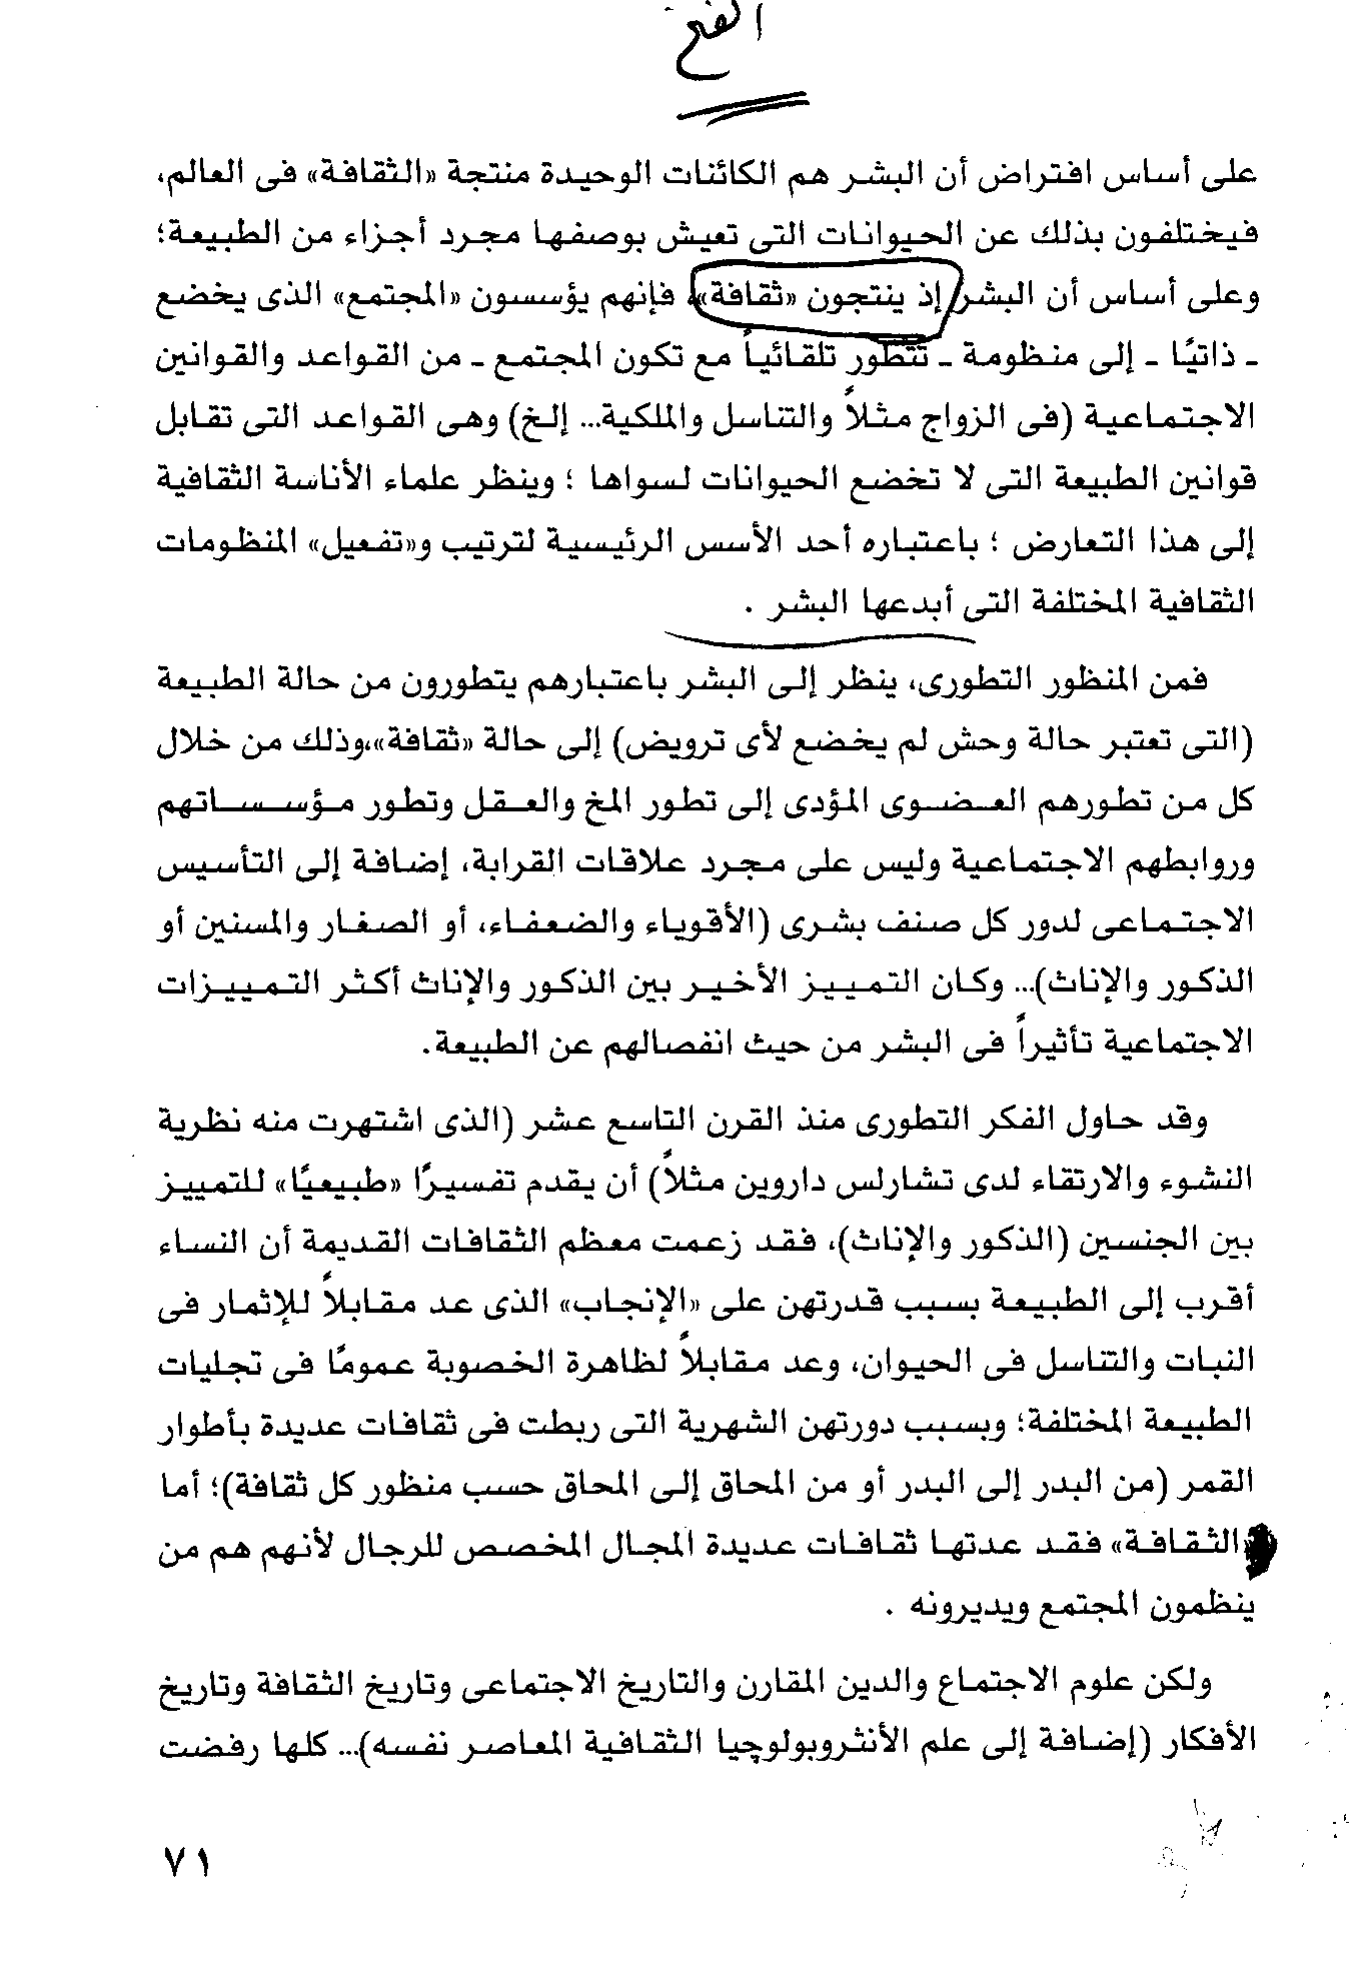 على أساس افتراض أن البشر هم الكائنات الوحيدة منتجة «الثقافة» فى العالم،
فيختلفون بذلك عن الحيوانات التى تعيش بوصفها مجرد أجزاء من الطبيعة؛
وعلى أساس أن البشر إذ ينتجون «ثقافة» فإنهم يؤسسون «المجتمع» الذى يخضع
ـ ذاتيًا ـ إلى منظومة ـ تتطور تلقائياً مع تكون المجتمع ـ من القواعد والقوانين
الاجتماعية (فى الزواج مثلاً والتناسل والملكية... إلخ) وهى القواعد التى تقابل
قوانين الطبيعة التى لا تخضع الحيوانات لسواها ؛ وينظر علماء الأناسة الثقافية
إلى هذا التعارض ؛ باعتباره أحد الأسس الرئيسية لترتيب و«تفعيل» المنظومات
الثقافية المختلفة التى أبدعها البشر .
فمن المنظور التطورى، ينظر إلى البشر باعتبارهم يتطورون من حالة الطبيعة
(التى تعتبر حالة وحش لم يخضع لأى ترويض) إلى حالة «ثقافة»،وذلك من خلال
كل من تطورهم العضوى المؤدى إلى تطور المخ والعقل وتطور مؤسساتهم
وروابطهم الاجتماعية وليس على مجرد علاقات القرابة، إضافة إلى التأسيس
الاجتماعى لدور كل صنف بشرى (الأقوياء والضعفاء، أو الصغار والمسنين أو
الذكور والإناث)... وكان التمييز الأخير بين الذكور والإناث أكثر التمييزات
الاجتماعية تأثيراً فى البشر من حيث انفصالهم عن الطبيعة.
وقد حاول الفكر التطورى منذ القرن التاسع عشر (الذى اشتهرت منه نظرية
النشوء والارتقاء لدى تشارلس داروين مثلاً) أن يقدم تفسيرًا «طبيعيًا» للتمييز
بين الجنسين (الذكور والإناث)، فقد زعمت معظم الثقافات القديمة أن النساء
أقرب إلى الطبيعة بسبب قدرتهن على «الإنجاب» الذى عد مقابلاً للإثمار فى
النبات والتناسل فى الحيوان، وعد مقابلاً لظاهرة الخصوبة عمومًا فى تجليات
الطبيعة المختلفة؛ وبسبب دورتهن الشهرية التى ربطت فى ثقافات عديدة بأطوار
القمر (من البدر إلى البدر أو من المحاق إلى المحاق حسب منظور كل ثقافة)؛ أما
«الثقافة» فقد عدتها ثقافات عديدة المجال المخصص للرجال لأنهم هم من
ينظمون المجتمع ويديرونه .
ولكن علوم الاجتماع والدين المقارن والتاريخ الاجتماعى وتاريخ الثقافة وتاريخ
الأفكار (إضافة إلى علم الأنثروبولوچيا الثقافية المعاصر نفسه)... كلها رفضت
٧١